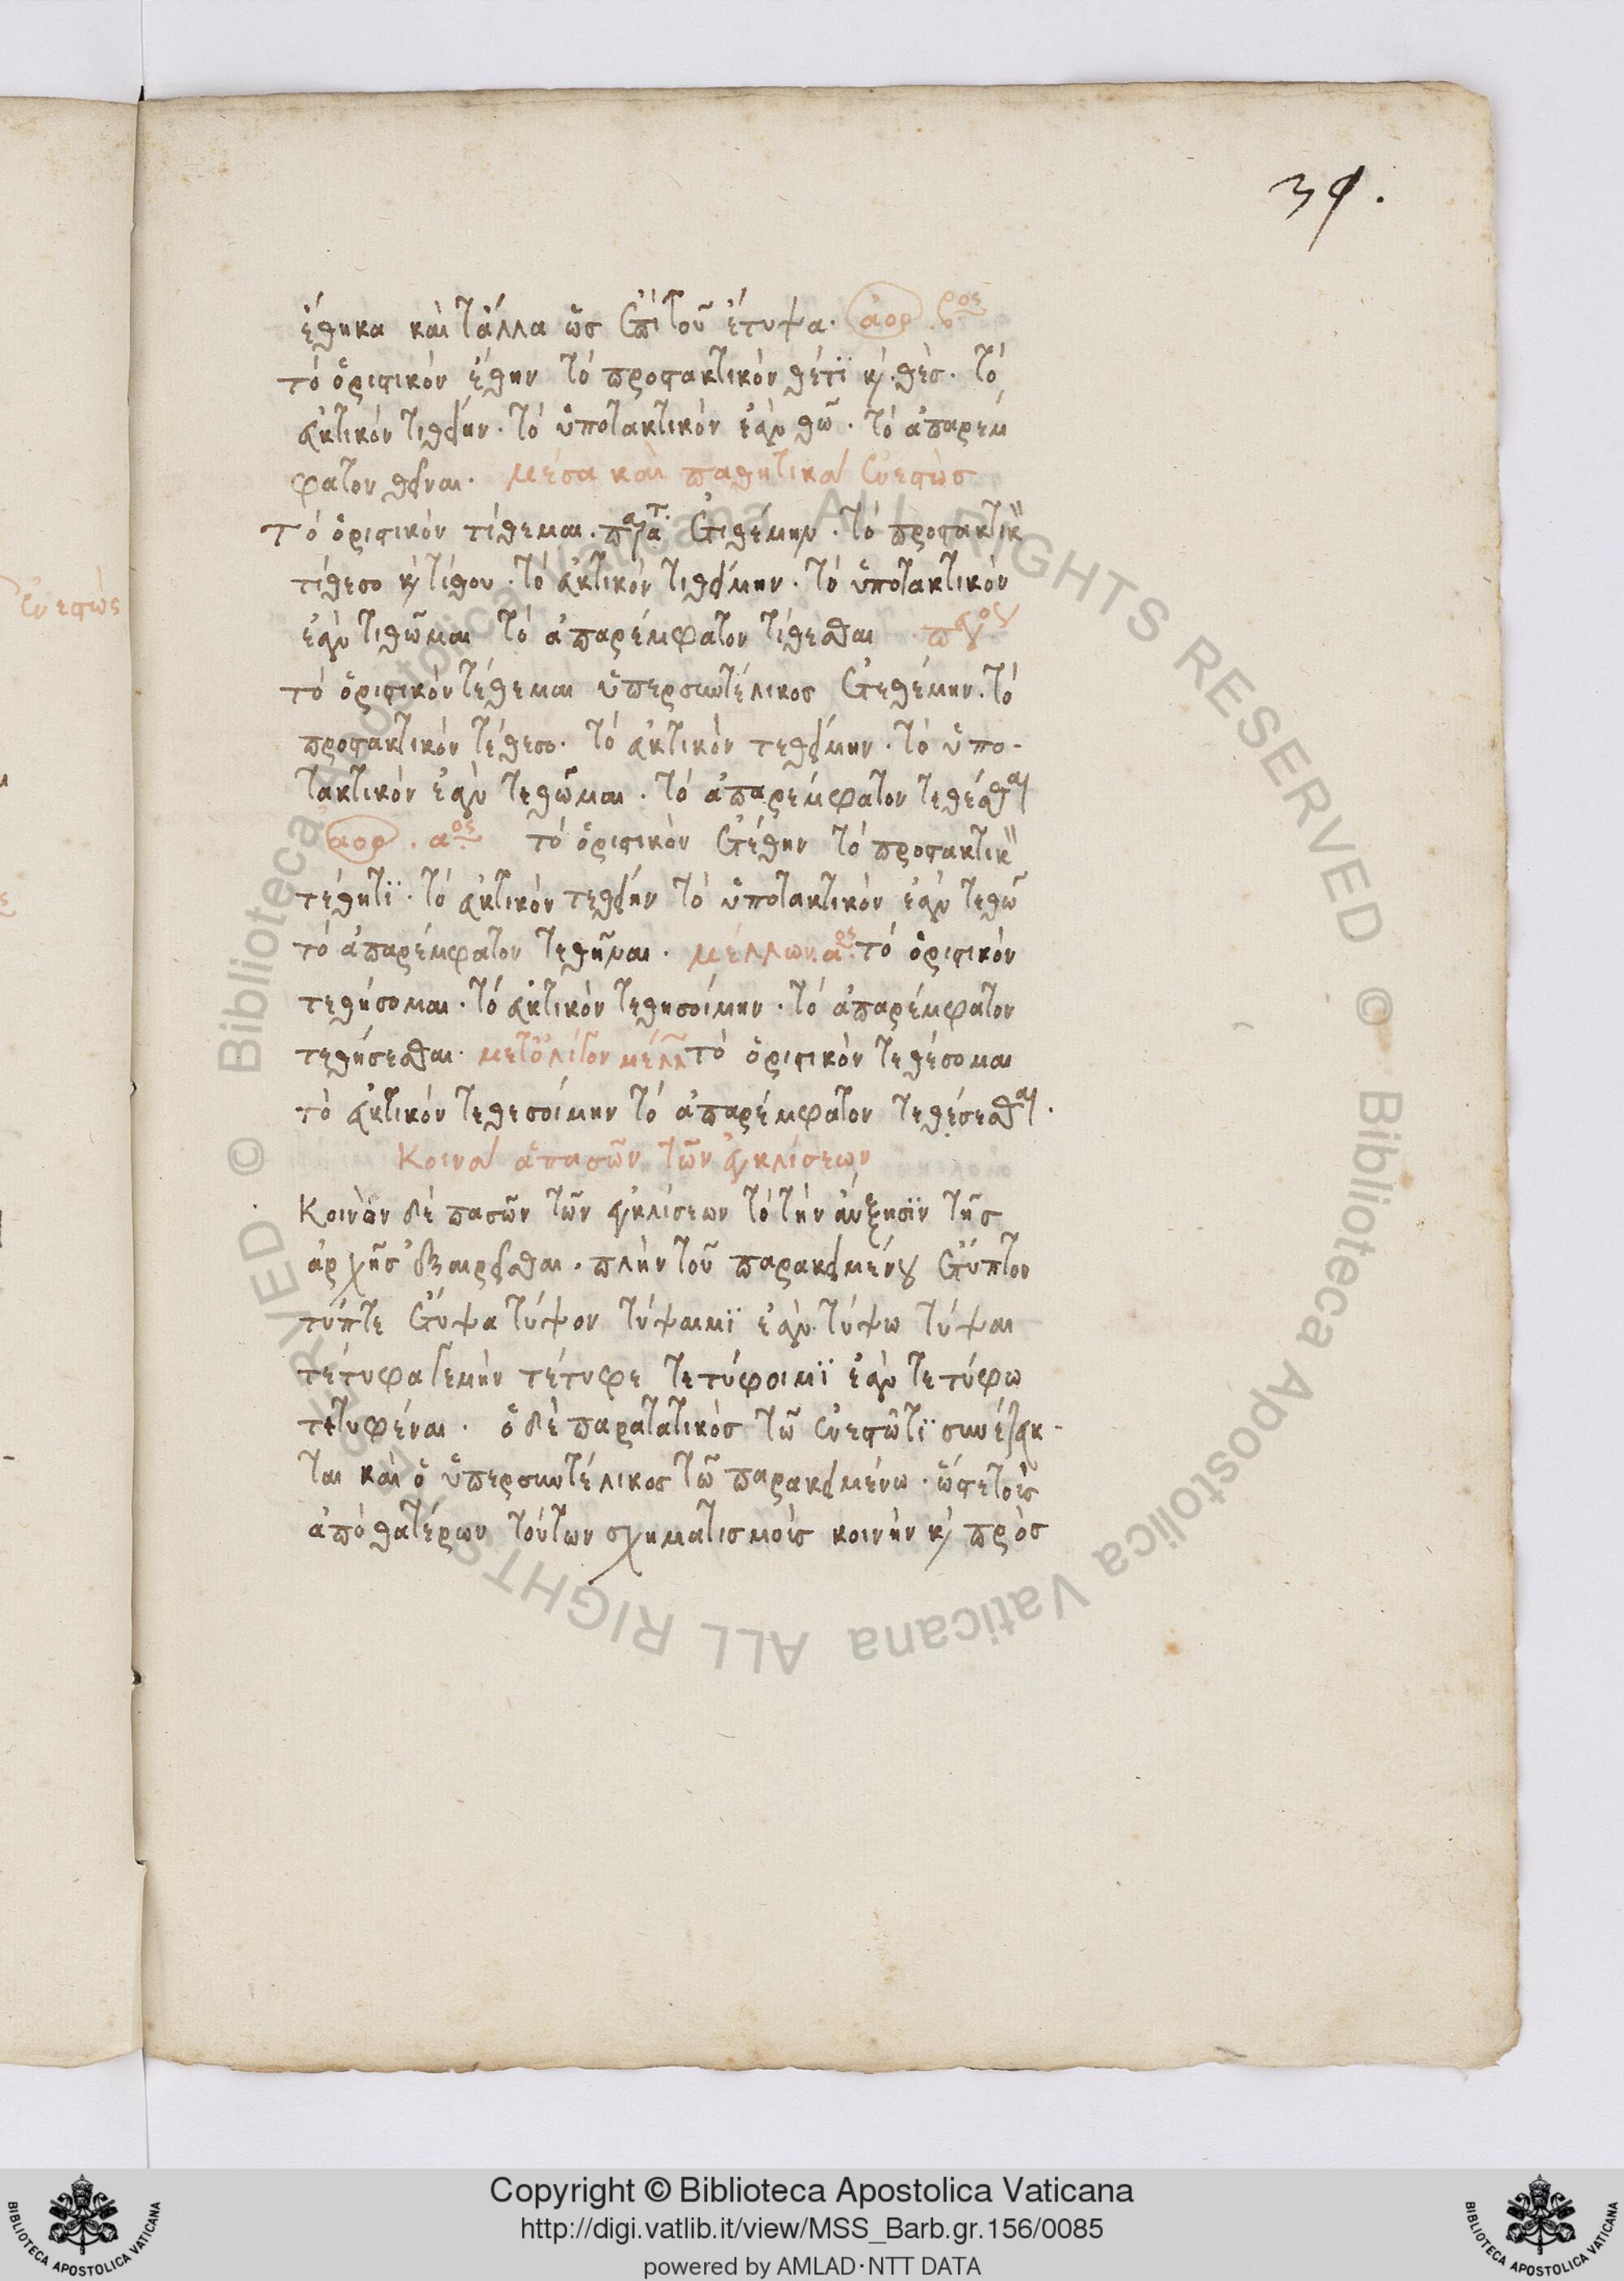 39.
ἔθηκα καὶ τἆλλα ὡς ἐπὶ τοῦ ἔτυψα. ἀορ. βος
τὸ ὁριστικὸν ἔθην τὸ προστακτικὸν θέτϊ κ θὲς. τὸ
εὐκτικὸν τιθείην. τὸ ὑποτακτικὸν ἐὰν θῶ. τὸ ἀπαρέμ
φατον θεῖναι. μέσα καὶ παθητικὰ ἐνεστὼς
Τὸ ὁριστικὸν τίθεμαι. παρατ. ἐτιθέμην. τὸ προστακτικ
τίθεσο κ τίθου. τὸ εὐκτικὸν τιθείμην. τὸ ὑποτακτικὸν
ἐὰν τιθῶμαι τὸ ἀπαρέμφατον τίθεσθαι
ἐνεστώς
τὸ ὁριστικὸν τέθεμαι ὑπερσυντέλικος ἐτεθέμην. τὸ
προστακτικὸν τέθεσο. τὸ εὐκτικὸν τεθείμην. τὸ ὑπο-
τακτικὸν ἐὰν τεθῶμαι. τὸ ἀπαρέμφατον τεθέσθαι
ἀορ. αος τὸ ὁριστικὸν ἐτέθην τὸ προστακτικ
τέθητϊ. τὸ εὐκτικὸν τεθείην τὸ ὑποτακτικὸν ἐὰν τεθῶ
τὸ ἀπαρέμφατον τεθῆναι. μέλλων αος τὸ ὁριστικὸν
τεθήσομαι. τὸ εὐκτικὸν τεθησοίμην. τὸ ἀπαρέμφατον
τεθήσεσθαι. μετ' ὀλίγον μέλλ τὸ ὁριστικὸν τεθέσομαι
τὸ εὐκτικὸν τεθεσοίμην τὸ ἀπαρέμφατον τεθέσεσθαι.
Κοινὰ ἁπασῶν τῶν ἐγκλίσεων
Κοινὸν δὲ πασῶν τῶν ἐγκλίσεων τὸ τὴν αὔξησϊν τῆς
ἀρχῆς ἐξαιρεῖσθαι. πλὴν τοῦ παρακειμένου ἔτυπτον
τύπτε ἔτυψα τύψον τύψαιμϊ ἐὰν τύψω τύψαι
τέτυφα γεμὴν τέτυφε τετύφοιμϊ ἐὰν τετύφω
τετυφέναι. ὁ δὲ παρατατικὸς τῶ ἐνεστῶτϊ συνέζευκ-
ται καὶ ὁ ὑπερσυντέλικος τῶ παρακειμένω. ὥστε τοῖς
ἀπὸ θατέρων τούτων σχηματισμοῖς κοινὴν κ πρὸς
ALL RIGHTS RESERVED © Biblioteca Apostolica Vaticana ALL RIGHTS RESERVED © Biblioteca Apostolica Vaticana
Copyright © Biblioteca Apostolica Vaticana
http://digi.vatlib.it/view/MSS_Barb.gr.156/0085
powered by AMLAD·NTT DATA
BIBLIOTECA APOSTOLICA VATICANA
BIBLIOTECA APOSTOLICA VATICANA